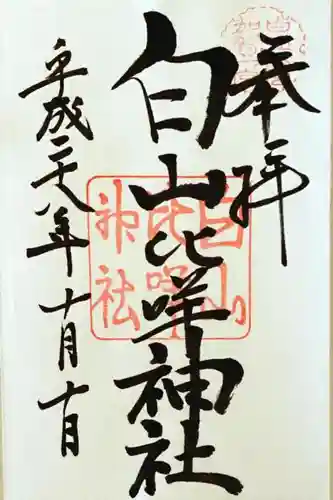 奉拝
白山比咩神社
平成二十八年十月十日
白山比咩神社